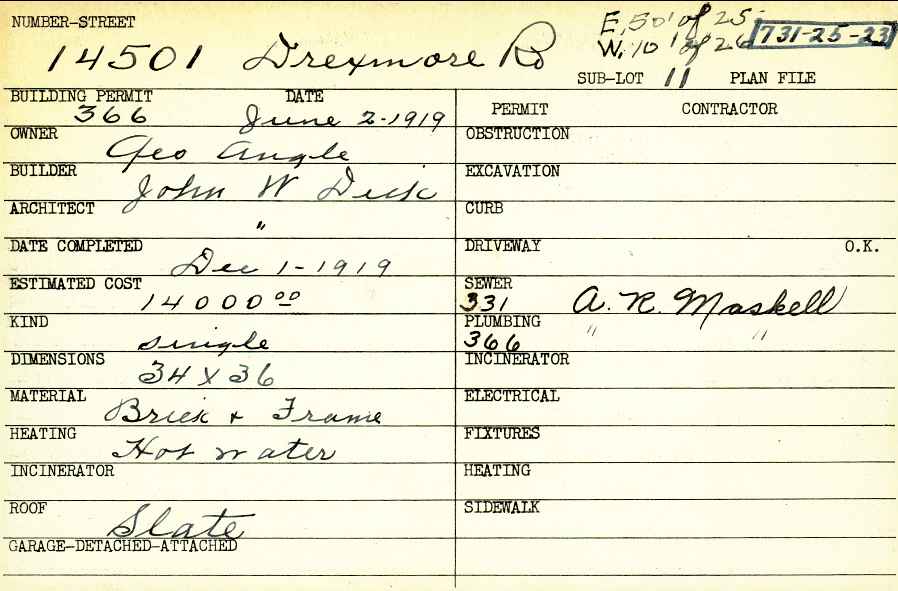 NUMBER-STREET
E. 50' of 25
W. 10' of 26
731-25-23
14501 Drexmore Rd
SUB-LOT 11 PLAN FILE
BUILDING PERMIT DATE
366 June 2-1919
OWNER
Geo Angle
BUILDER
John W Dick
ARCHITECT
"
DATE COMPLETED
Dec 1-1919
ESTIMATED COST
14000 00
KIND
single
DIMENSIONS
34 x 36
MATERIAL
Brick + Frame
HEATING
Hot water
INCINERATOR
ROOF
Slate
GARAGE-DETACHED-ATTACHED
PERMIT CONTRACTOR
OBSTRUCTION
EXCAVATION
CURB
DRIVEWAY O.K.
SEWER
331 A. R. Maskell
PLUMBING
366 " "
INCINERATOR
ELECTRICAL
FIXTURES
HEATING
SIDEWALK